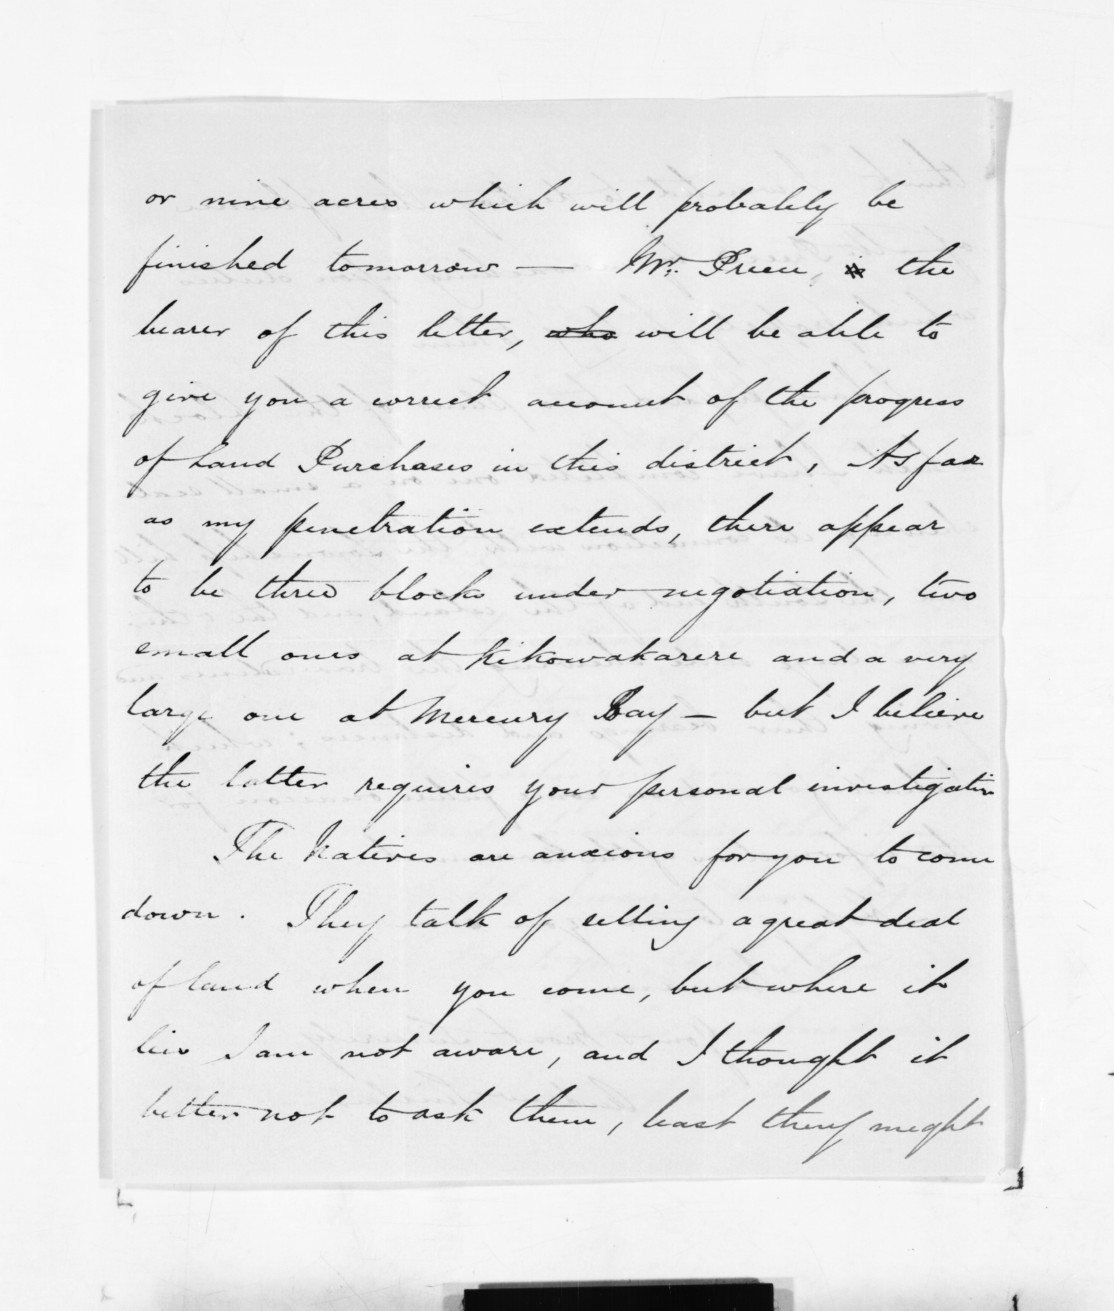 or nine acres which will probably be
finished tomorrow — Mr. Preece, is the
bearer of this letter, who will be able to
give you a correct account of the progress
of Land Purchases in this district, As far
as my penetration extends, there appear
to be three blocks under negotiation, two
small ones at Kikowakarere and a very
large one at Mercury Bay — but I believe
the latter requires your personal investigation
The Natives are anxious for you to come
down. They talk of selling a great deal
of land when you come, but where it
lies I am not aware, and I thought it
better not to ask them, least they might